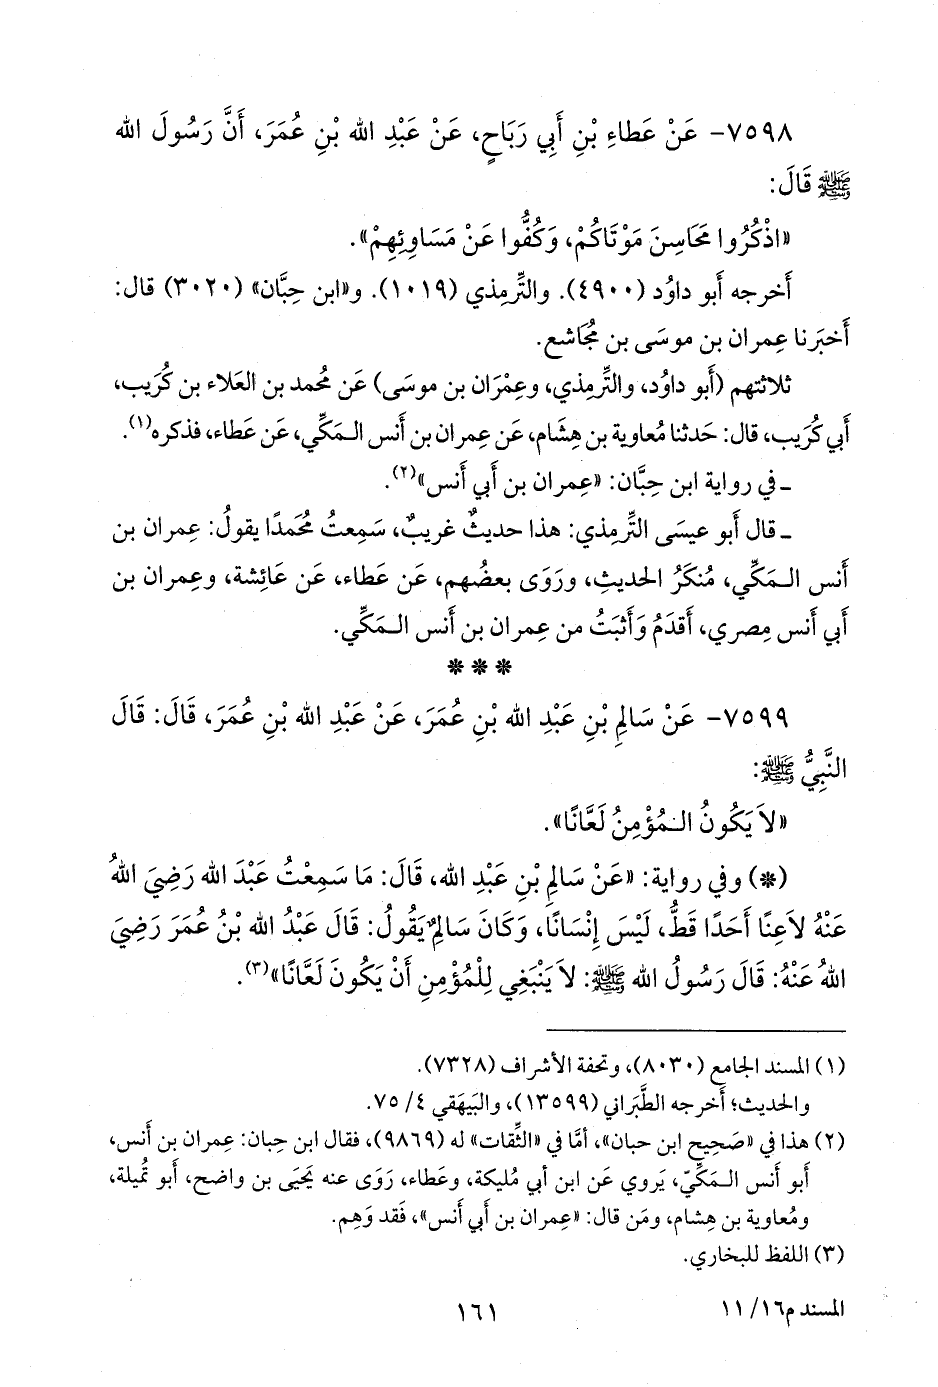 ٧٥٩٨- عَنْ عَطَاءِ بْنِ أَبِي رَبَاحٍ، عَنْ عَبْدِ الله بْنِ عُمَرَ، أَنَّ رَسُولَ الله
ﷺ قَالَ:
«اذْكُرُوا مَحَاسِنَ مَوْتَاكُمْ، وَكُفُّوا عَنْ مَسَاوِئِهِمْ».
أَخرجه أَبو داوُد (٤٩٠٠). والتِّرمِذي (١٠١٩). و«ابن حِبَّان» (٣٠٢٠) قال:
أَخبَرنا عِمران بن موسَى بن مُجَاشع.
ثلاثتهم (أَبو داوُد، والتِّرمِذي، وعِمْرَان بن موسَى) عَن مُحمد بن العَلاء بن كُرَيب،
أَبي كُرَيب، قال: حَدثنا مُعاوية بن هِشَام، عَن عِمران بن أَنس الـمَكِّي، عَن عَطاء، فذكره(١).
ـ في رواية ابن حِبَّان: «عِمران بن أَبي أَنس»(٢).
ـ قال أَبو عيسَى التِّرمِذي: هذا حديثٌ غريبٌ، سَمِعتُ مُحَمدًا يقولُ: عِمران بن
أَنس الـمَكِّي، مُنكَرُ الحديثِ، ورَوَى بعضُهم، عَن عَطاء، عَن عَائِشة، وعِمران بن
أَبي أَنس مِصري، أَقدَمُ وَأَثبَتُ من عِمران بن أَنس الـمَكِّي.
***
٧٥٩٩- عَنْ سَالِمِ بْنِ عَبْدِ الله بْنِ عُمَرَ، عَنْ عَبْدِ الله بْنِ عُمَرَ، قَالَ: قَالَ
النَّبِيُّ ﷺ:
«لاَ يَكُونُ الـمُؤْمِنُ لَعَّانًا».
(*) وفي رواية: «عَنْ سَالِمِ بْنِ عَبْدِ الله، قَالَ: مَا سَمِعْتُ عَبْدَ الله رَضِيَ اللهُ
عَنْهُ لاَعِنًا أَحَدًا قَطُّ، لَيْسَ إِنْسَانًا، وَكَانَ سَالِمٌ يَقُولُ: قَالَ عَبْدُ الله بْنُ عُمَرَ رَضِيَ
اللهُ عَنْهُ: قَالَ رَسُولُ الله ﷺ: لاَ يَنْبَغِي لِلْمُؤْمِنِ أَنْ يَكُونَ لَعَّانًا»(٣).
(١) المسند الجامع (٨٠٣٠)، وتحفة الأشراف (٧٣٢٨).
والحديث؛ أَخرجه الطَّبَراني (١٣٥٩٩)، والبَيهَقي ٤/ ٧٥.
(٢) هذا في «صَحِيح ابن حبان»، أمَّا في «الثِّقات» له (٩٨٦٩)، فقال ابن حِبان: عِمران بن أَنس،
أَبو أَنس الـمَكِّيّ، يَروي عَن ابن أَبي مُليكة، وعَطاء، رَوَى عنه يَحيَى بن واضح، أَبو تُميلة،
ومُعاوية بن هِشام، ومَن قال: «عِمران بن أَبي أَنس»، فَقد وَهِم.
(٣) اللفظ للبخاري.
المسند م١٦/ ١١
١٦١